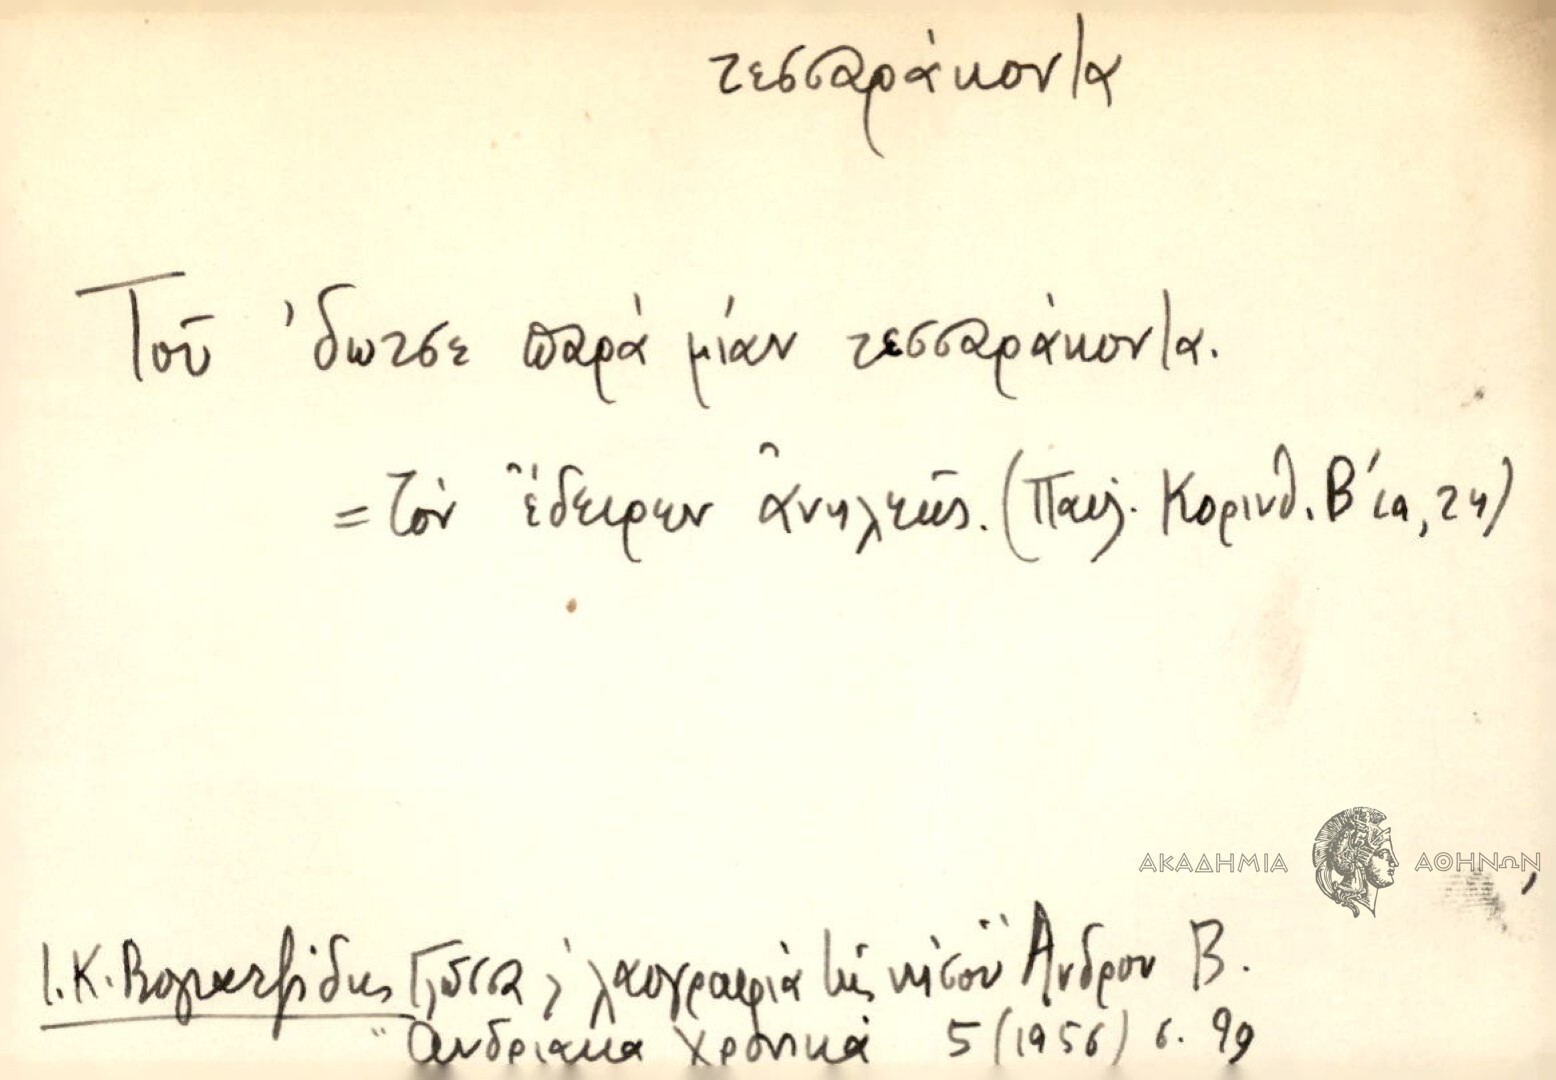 τεσσαράκοντα
Τοῦ 'δωτσε παρά μίαν τεσσαράκοντα.
= τόν ἔδειρεν ἀνηλεῶς. (Παύλ. Κορινθ. Β' ια, 24)
ΑΚΑΔΗΜΙΑ ΑΘΗΝΩΝ
Ι. Κ. Βογιατζίδης Γλῶσσα λαογραφία τῆς νήσου Ἄνδρου Β.
Ἀνδριακά Χρονικά 5 (1956) σ. 99